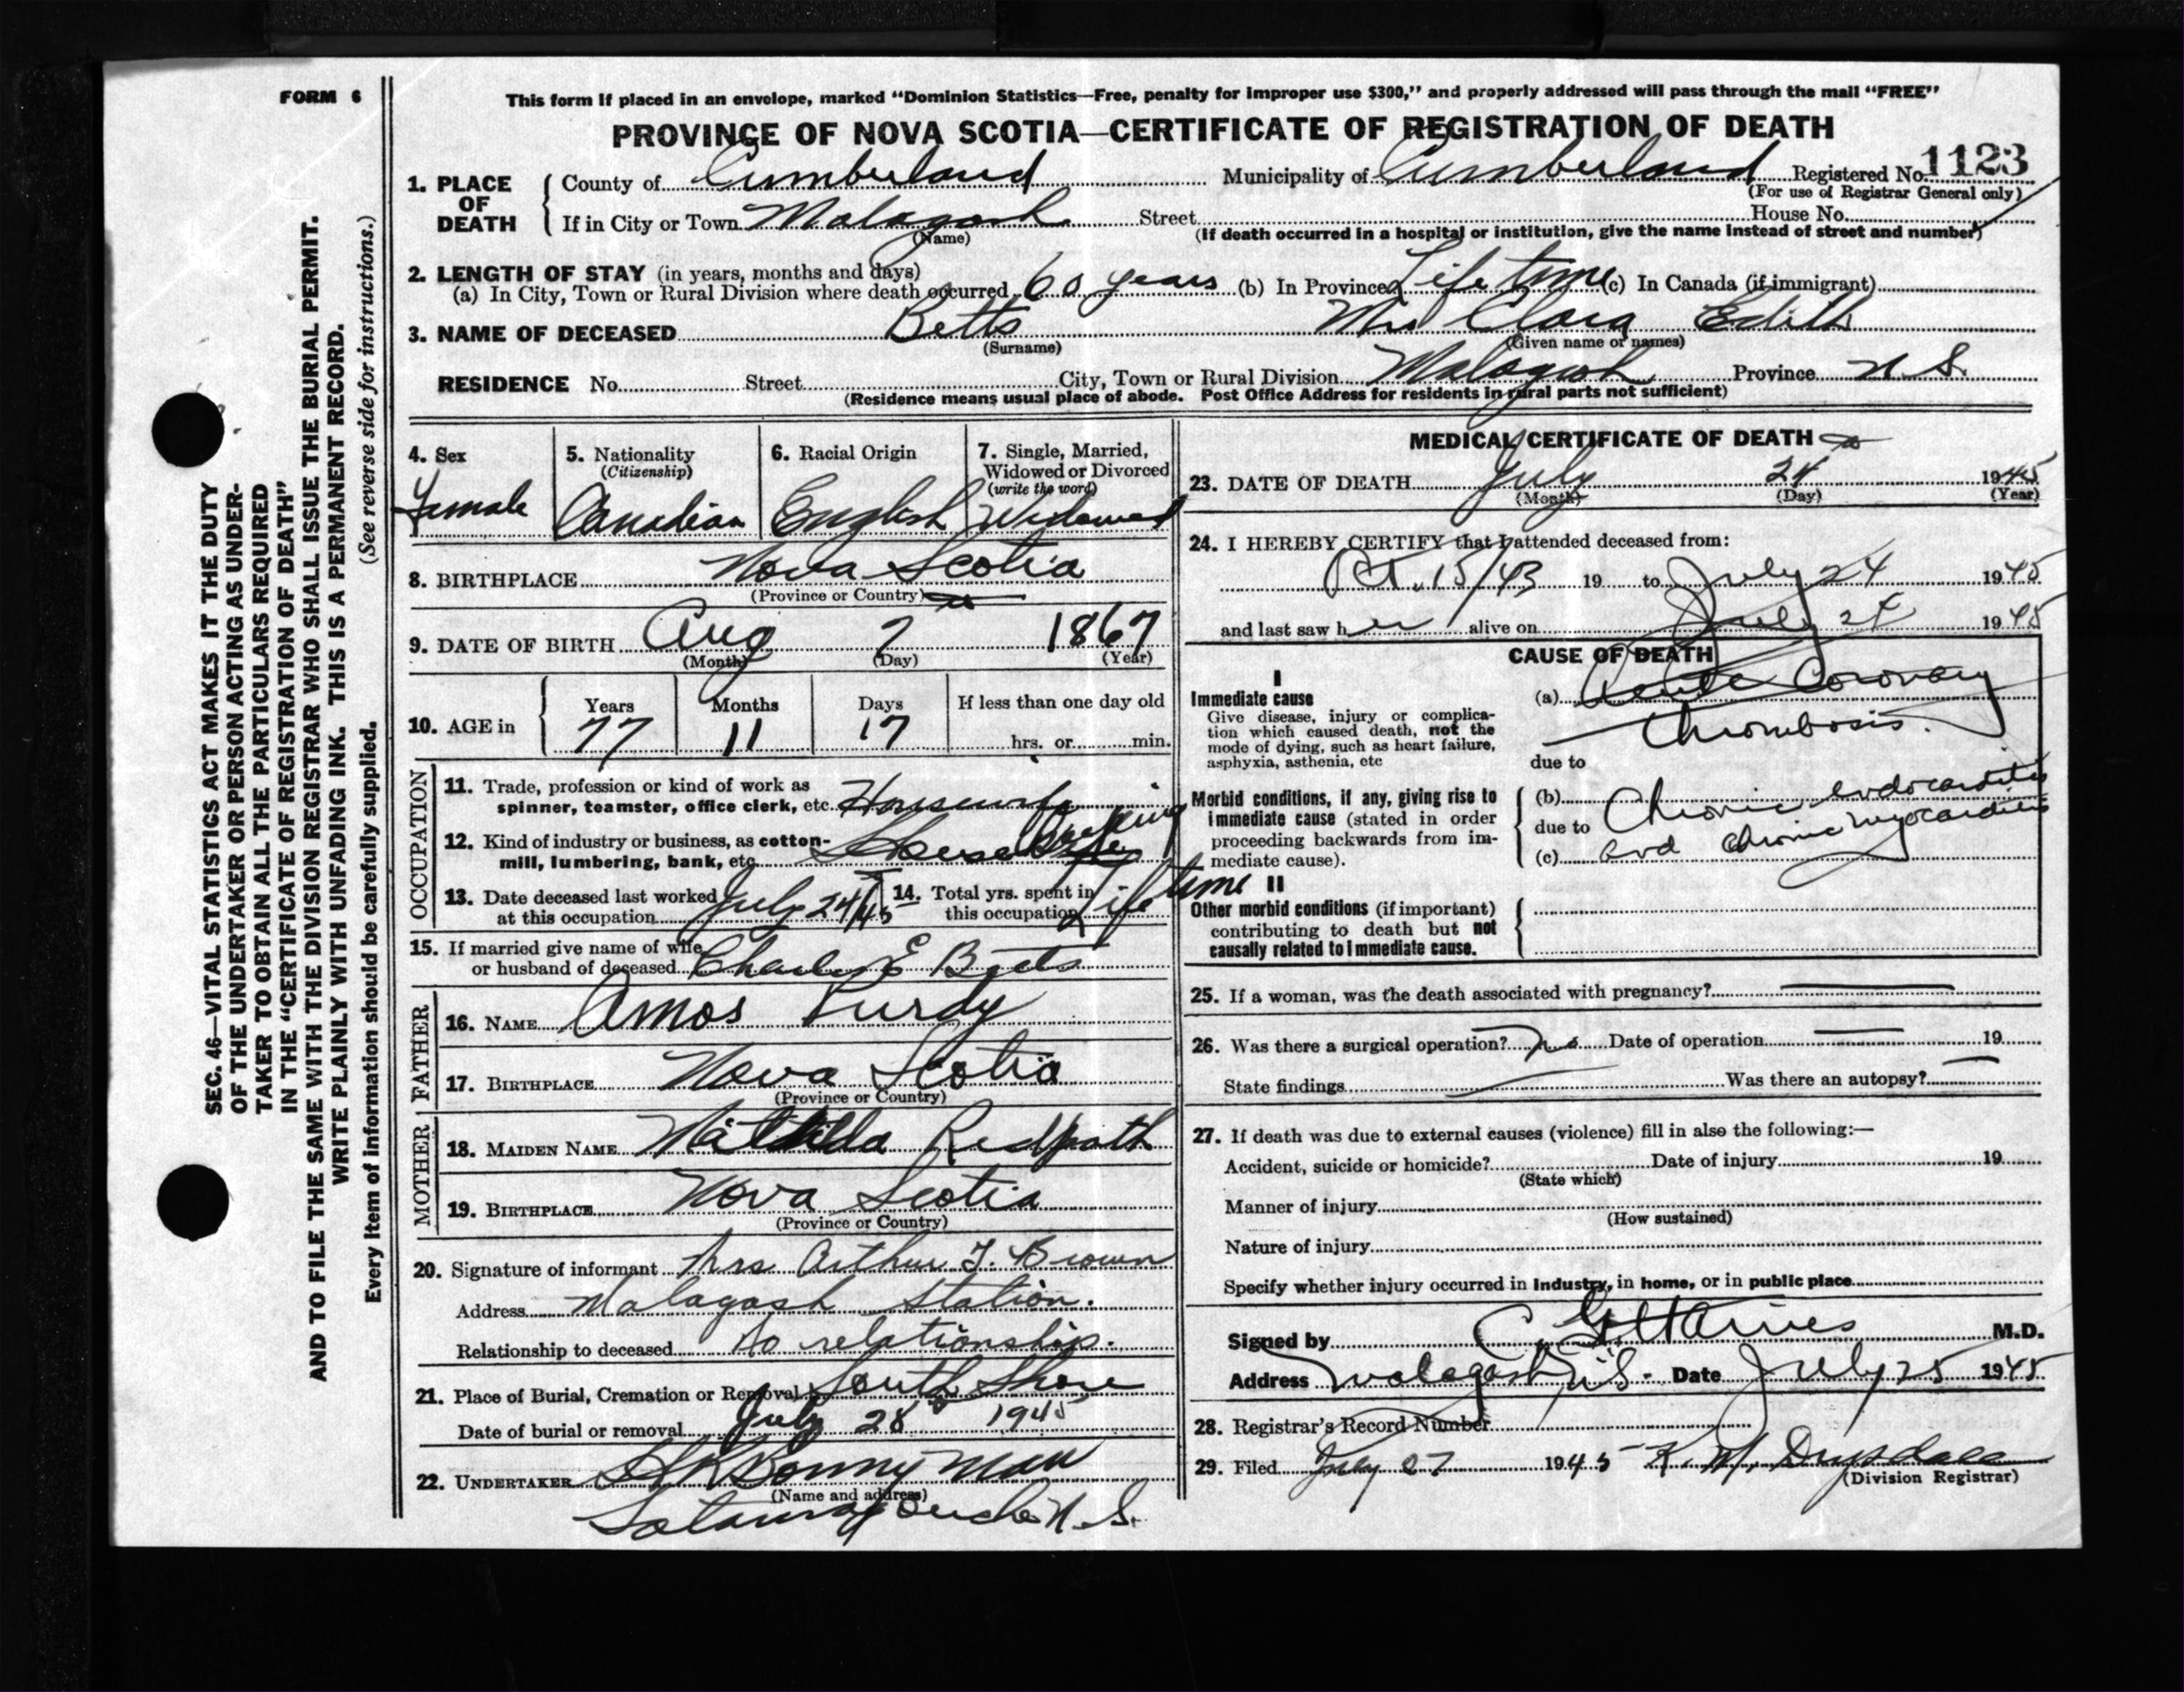 FORM 6
This form if placed in an envelope, marked “Dominion Statistics—Free, penalty for improper use $300,” and properly addressed will pass through the mail “FREE”
PROVINCE OF NOVA SCOTIA—CERTIFICATE OF REGISTRATION OF DEATH
1. PLACE OF DEATH County of Cumberland Municipality of Cumberland Registered No. 1123
(For use of Registrar General only)
If in City or Town Malagash Street House No.
(Name) (If death occurred in a hospital or institution, give the name instead of street and number)
2. LENGTH OF STAY (in years, months and days)
(a) In City, Town or Rural Division where death occurred 60 years (b) In Province Life time (c) In Canada (if immigrant)
3. NAME OF DECEASED Betts Mrs Clara Edith
(Surname) (Given name or names)
RESIDENCE No. Street City, Town or Rural Division Malagash Province N.S.
(Residence means usual place of abode. Post Office Address for residents in rural parts not sufficient)
4. Sex 5. Nationality (Citizenship) 6. Racial Origin 7. Single, Married, Widowed or Divorced (write the word)
Female Canadian English Widowed
8. BIRTHPLACE Nova Scotia
(Province or Country)
9. DATE OF BIRTH Aug 7 1867
(Month) (Day) (Year)
10. AGE in Years Months Days If less than one day old
77 11 17 hrs. or min.
OCCUPATION
11. Trade, profession or kind of work as
spinner, teamster, office clerk, etc. Housewife
12. Kind of industry or business, as cotton-
mill, lumbering, bank, etc. House Keeping
13. Date deceased last worked at this occupation July 24/45 14. Total yrs. spent in this occupation Life time
15. If married give name of wife
or husband of deceased Charles E Betts
FATHER
16. NAME Amos Purdy
17. BIRTHPLACE Nova Scotia
(Province or Country)
MOTHER
18. MAIDEN NAME Matilda Redpath
19. BIRTHPLACE Nova Scotia
(Province or Country)
20. Signature of informant Mrs Arthur J. Brown
Address Malagash Station.
Relationship to deceased No relationship.
21. Place of Burial, Cremation or Removal South Shore
Date of burial or removal July 28th 1945
22. UNDERTAKER Bonnyman
(Name and address)
Tatamagouche N.S.
MEDICAL CERTIFICATE OF DEATH
23. DATE OF DEATH July 24 1945
(Month) (Day) (Year)
24. I HEREBY CERTIFY that I attended deceased from:
Oct. 15/43 19 to July 24 1945
and last saw her alive on July 24 1945
CAUSE OF DEATH
I
Immediate cause (a) Acute Coronary
Give disease, injury or complica-
tion which caused death, not the
mode of dying, such as heart failure,
asphyxia, asthenia, etc
thrombosis.
due to
Morbid conditions, if any, giving rise to
immediate cause (stated in order
proceeding backwards from im-
mediate cause).
(b) Chronic endocarditis
due to
(c) and chronic myocarditis
II
Other morbid conditions (if important)
contributing to death but not
causally related to immediate cause.
25. If a woman, was the death associated with pregnancy?
26. Was there a surgical operation? no Date of operation 19
State findings Was there an autopsy?
27. If death was due to external causes (violence) fill in also the following:—
Accident, suicide or homicide? Date of injury 19
(State which)
Manner of injury
(How sustained)
Nature of injury
Specify whether injury occurred in Industry, in home, or in public place
Signed by M.D.
Address Malagash, N.S. Date July 25 1945
28. Registrar's Record Number
29. Filed July 27 1945 K. M. Drysdale
(Division Registrar)
SEC. 46—VITAL STATISTICS ACT MAKES IT THE DUTY
OF THE UNDERTAKER OR PERSON ACTING AS UNDER-
TAKER TO OBTAIN ALL THE PARTICULARS REQUIRED
IN THE “CERTIFICATE OF REGISTRATION OF DEATH”
AND TO FILE THE SAME WITH THE DIVISION REGISTRAR WHO SHALL ISSUE THE BURIAL PERMIT.
WRITE PLAINLY WITH UNFADING INK. THIS IS A PERMANENT RECORD.
Every item of information should be carefully supplied. (See reverse side for instructions.)